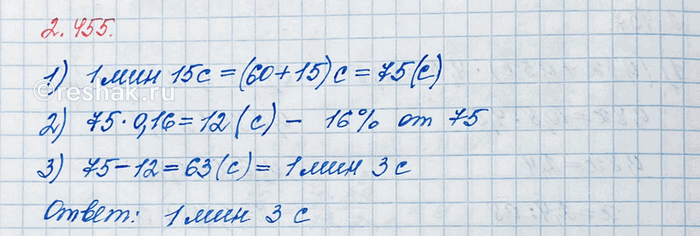 2.455.
1) 1 мин 15с = (60+15)с = 75(с)
©reshak.ru
2) 75 · 0,16 = 12 (с) – 16% от 75
3) 75 – 12 = 63(с) = 1 мин 3 с
Ответ: 1 мин 3 с